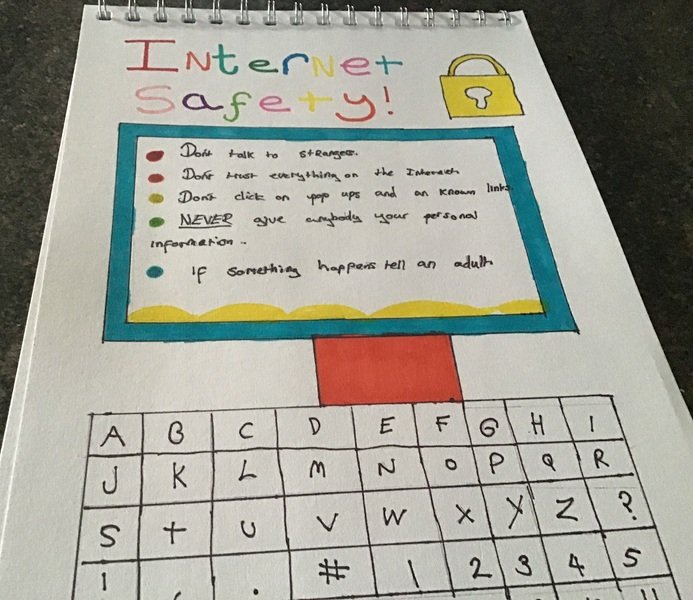 Internet
Safety!
Don't talk to strangers.
Don't trust everything on the Internet
Don't click on pop ups and un known links
NEVER give anybody your personal
information..
If something happens tell an adult
A B C D E F G H I
J K L M N O P Q R
S T U V W X Y Z ?
! , . # 1 2 3 4 5